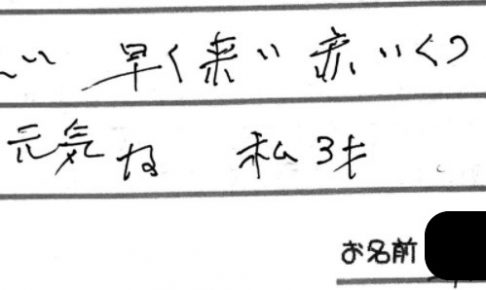 い 早く来い 赤いくつ
元気な 私3才
お名前